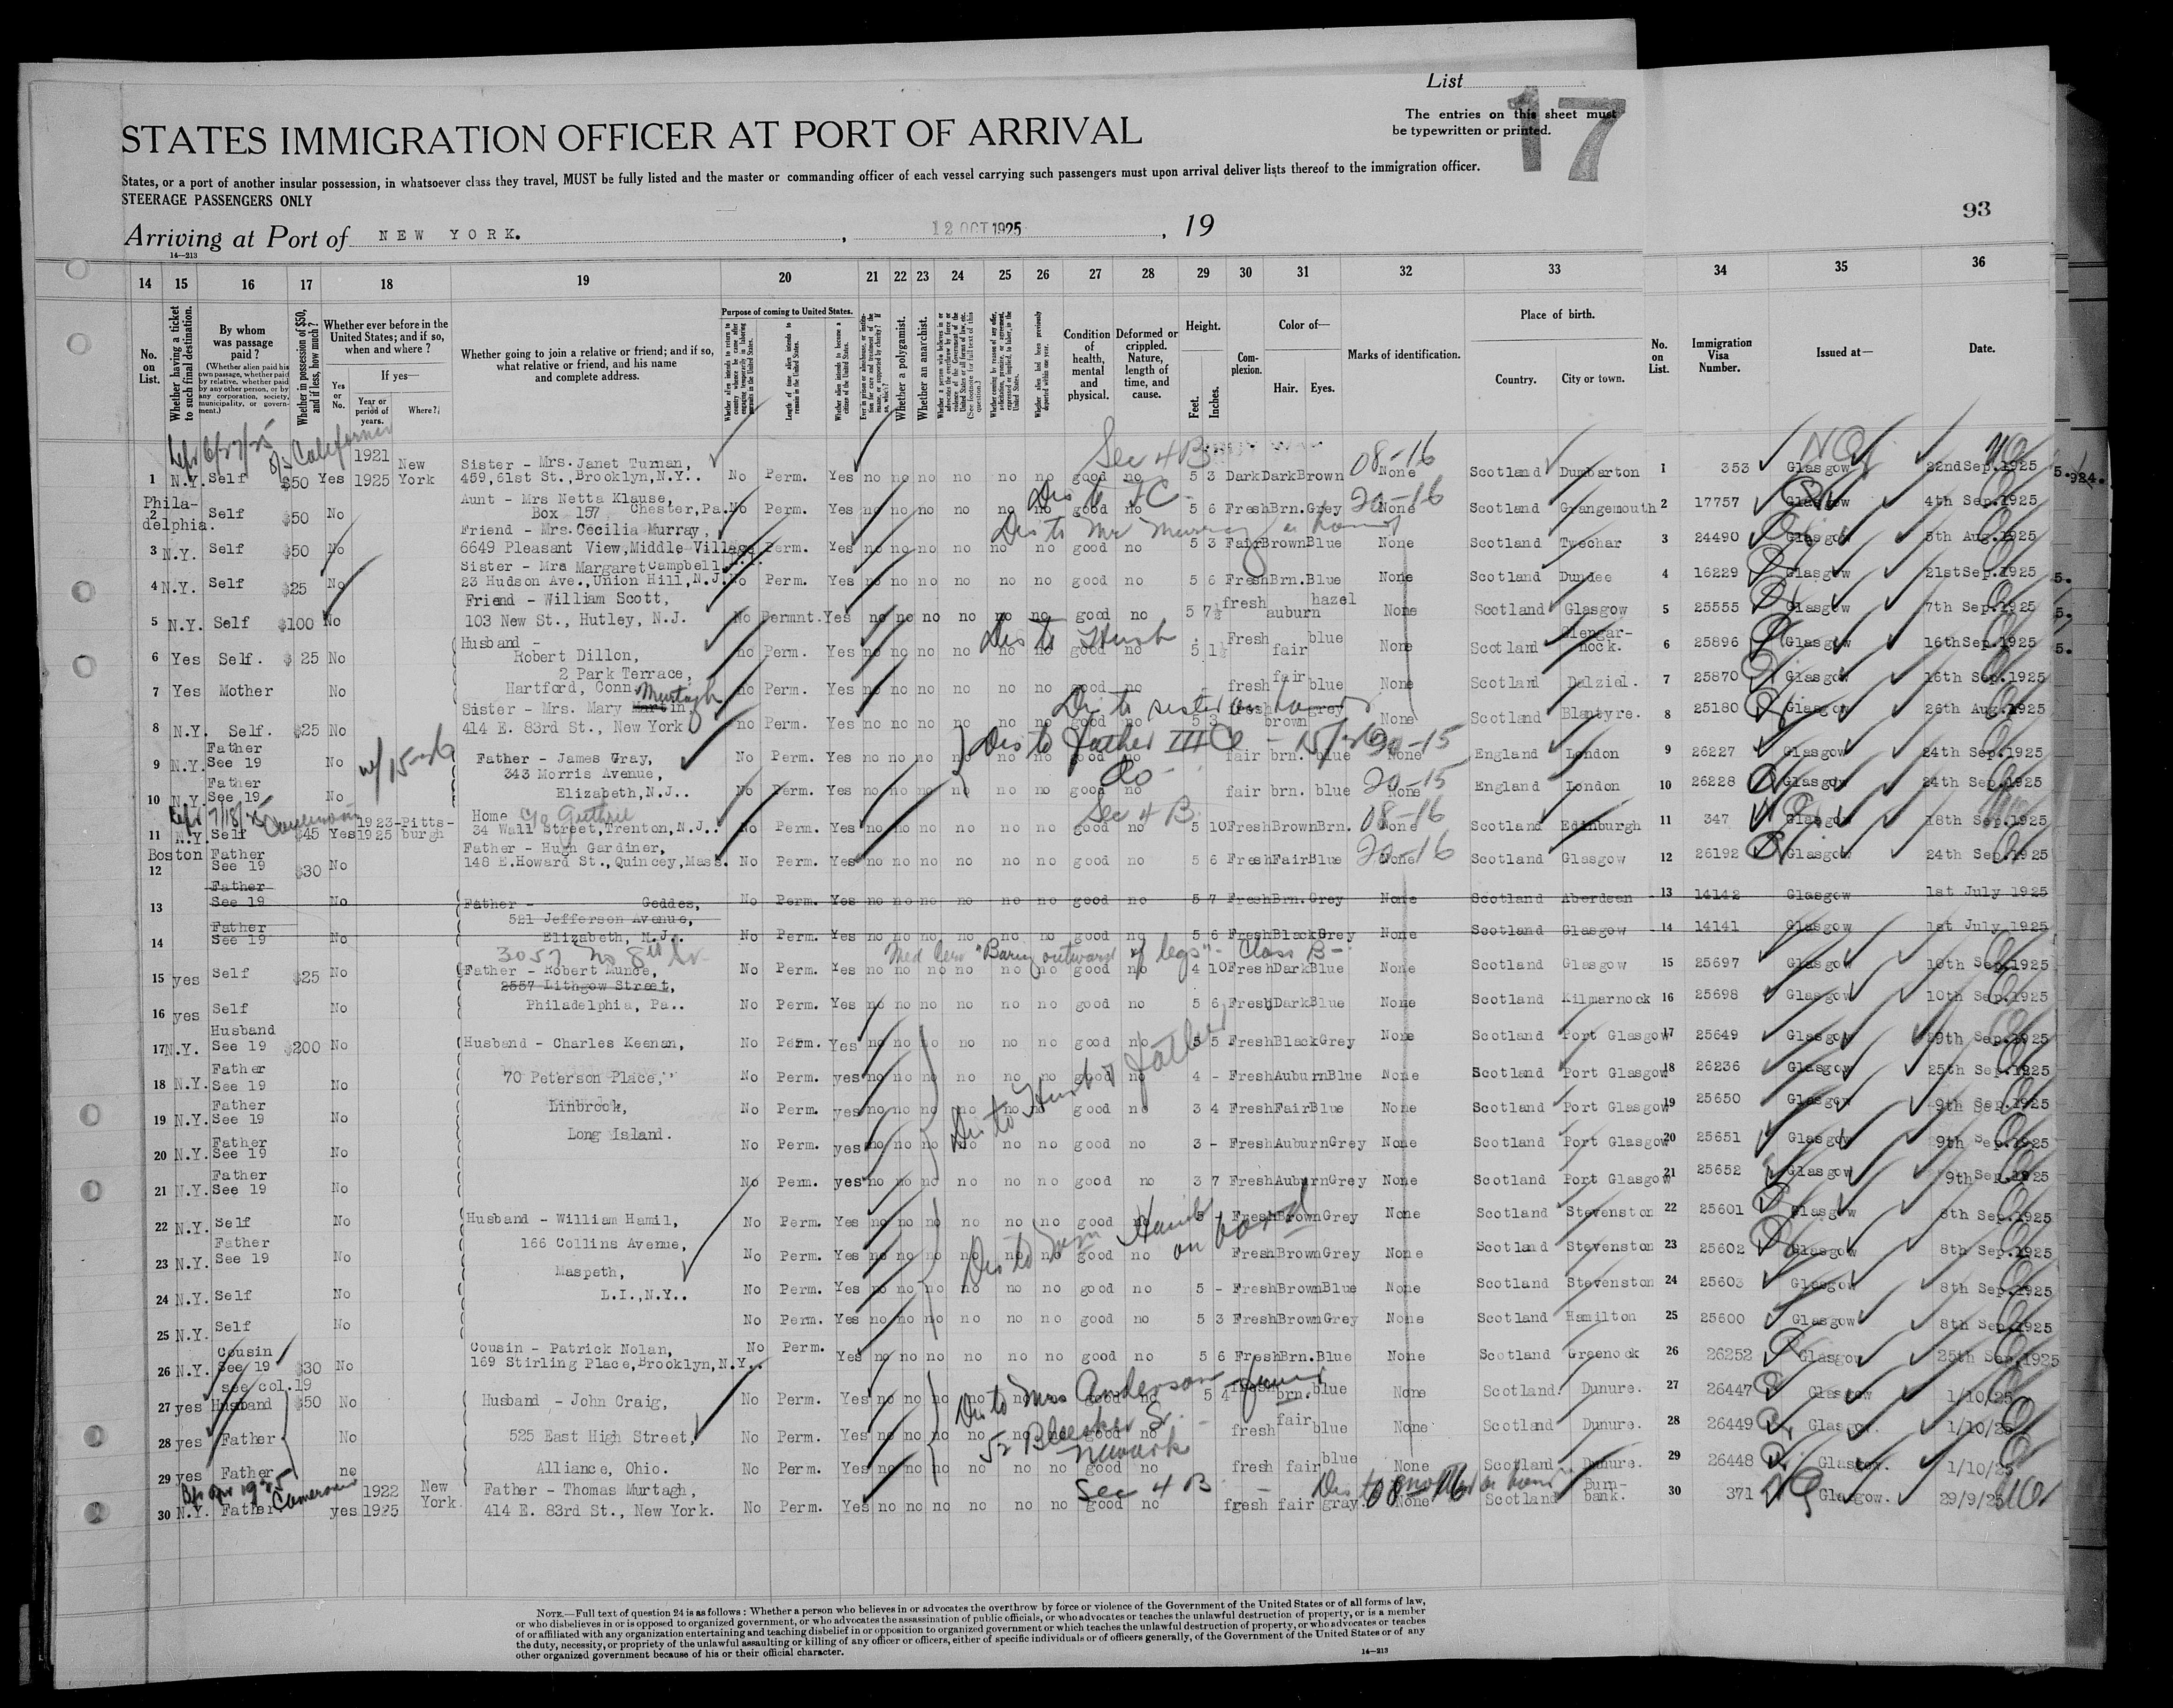 List
17
The entries on this sheet must
be typewritten or printed.
STATES IMMIGRATION OFFICER AT PORT OF ARRIVAL
States, or a port of another insular possession, in whatsoever class they travel, MUST be fully listed and the master or commanding officer of each vessel carrying such passengers must upon arrival deliver lists thereof to the immigration officer.
STEERAGE PASSENGERS ONLY
93
Arriving at Port of NEW YORK. , 12 OCT 1925 , 19
14—213
14 15 16 17 18 19 20 21 22 23 24 25 26 27 28 29 30 31 32 33 34 35 36
No. on List.
Whether having a ticket to such final destination.
By whom was passage paid?
(Whether alien paid his own passage, whether paid by relative, whether paid by any other person, or by any corporation, society, municipality, or government.)
Whether in possession of $50, and if less, how much?
Whether ever before in the United States; and if so, when and where?
If yes—
Yes or No.
Year or period of years.
Where?
Whether going to join a relative or friend; and if so, what relative or friend, and his name and complete address.
Purpose of coming to United States.
Whether a polygamist.
Whether an anarchist.
Condition of health, mental and physical.
Deformed or crippled. Nature, length of time, and cause.
Height.
Feet. Inches.
Complexion.
Color of—
Hair. Eyes.
Marks of identification.
Place of birth.
Country. City or town.
No. on List.
Immigration Visa Number.
Issued at—
Date.
California
Sec 4 B 08-16
1 N.Y. Self $50 Yes 1921 1925 New York Sister - Mrs. Janet Turnan, 459,61st St.,Brooklyn,N.Y.. No Perm. Yes no no no no no no good no 5 3 Dark Dark Brown None Scotland Dumbarton 1 353 Glasgow 22nd Sep.1925
5.924.
20-16
2 Philadelphia. Self $50 No Aunt - Mrs Netta Klause, Box 157 Chester,Pa. No Perm. Yes no no no no no no good no 5 6 Fresh Brn. Grey None Scotland Grangemouth 2 17757 Glasgow 4th Sep.1925
Dis to Mr Murray
3 N.Y. Self $50 No Friend - Mrs. Cecilia Murray, 6649 Pleasant View,Middle Village Perm. Yes no no no no no no good no 5 3 Fair Brown Blue None Scotland Twechar 3 24490 Glasgow 5th Aug.1925
4 N.Y. Self $25 No Sister - Mrs Margaret Campbell 23 Hudson Ave.,Union Hill,N.J. No Perm. Yes no no no no no no good no 5 6 Fresh Brn. Blue None Scotland Dundee 4 16229 Glasgow 21st Sep.1925
5 N.Y. Self $100 No Friend - William Scott, 103 New St., Hutley, N.J. No Permnt. Yes no no no no no no good no 5 7½ fresh auburn hazel None Scotland Glasgow 5 25555 Glasgow 7th Sep.1925
Dis to Husb
6 Yes Self. $ 25 No Husband - Robert Dillon, no Perm. Yes no no no no no no good no 5 1½ Fresh fair blue None Scotland Glengarnock. 6 25896 Glasgow 16th Sep.1925
7 Yes Mother No 2 Park Terrace, Hartford, Conn. no Perm. Yes no no no no no no good no - fresh fair blue None Scotland Dalziel. 7 25870 Glasgow 16th Sep.1925
Murtagh
Dis to sister
8 N.Y. Self. $25 No Sister - Mrs. Mary Martin 414 E. 83rd St., New York no Perm. Yes no no no no no no good no 5 3 fresh brown grey None Scotland Blantyre. 8 25180 Glasgow 26th Aug.1925
Dis to father 20-15
9 N.Y. Father See 19 No Father - James Gray, No Perm. Yes no no no no no no good no fair brn. blue None England London 9 26227 Glasgow 24th Sep.1925
do 20-15
10 N.Y. Father See 19 No 343 Morris Avenue, Elizabeth,N.J.. No Perm. Yes no no no no no no good no fair brn. blue None England London 10 26228 Glasgow 24th Sep.1925
c/o Guthrie Sec 4 B 08-16
11 N.Y. Self $45 Yes 1923-1925 Pittsburgh Home 34 Wall Street,Trenton,N.J.. No Perm. Yes no no no no no no good no 5 10 Fresh Brown Brn. None Scotland Edinburgh 11 347 Glasgow 18th Sep.1925
20-16
12 Boston Father See 19 $30 No Father - Hugh Gardiner, 148 E.Howard St.,Quincey,Mass. No Perm. Yes no no no no no no good no 5 6 Fresh Fair Blue None Scotland Glasgow 12 26192 Glasgow 24th Sep.1925
13 Father See 19 No Father - Geddes, No Perm. Yes no no no no no no good no 5 7 Fresh Brn. Grey None Scotland Aberdeen 13 14142 Glasgow 1st July 1925
14 Father See 19 No 521 Jefferson Avenue, Elizabeth, N.J.. No Perm. Yes no no no no no no good no 5 6 Fresh Black Grey None Scotland Glasgow 14 14141 Glasgow 1st July 1925
3057 No 8th St. Med Cert "Bowing outward of legs" - Class B -
15 yes Self $25 No Father - Robert Munce, 2557 Lithgow Street, No Perm. Yes no no no no no no good no 4 10 Fresh Dark Blue None Scotland Glasgow 15 25697 Glasgow 10th Sep.1925
16 yes Self No Philadelphia, Pa.. No Perm. Yes no no no no no no good no 5 6 Fresh Dark Blue None Scotland Kilmarnock 16 25698 Glasgow 10th Sep.1925
17 N.Y. Husband See 19 $200 No Husband - Charles Keenan, No Perm. Yes no no no no no no good no 5 5 Fresh Black Grey None Scotland Port Glasgow 17 25649 Glasgow 29th Sep.1925
Dis to Husb & father
18 N.Y. Father See 19 No 70 Peterson Place, No Perm. yes no no no no no no good no 4 - Fresh Auburn Blue None Scotland Port Glasgow 18 26236 Glasgow 25th Sep.1925
19 N.Y. Father See 19 No Linbrook, No Perm. yes no no no no no no good no 3 4 Fresh Fair Blue None Scotland Port Glasgow 19 25650 Glasgow 9th Sep.1925
20 N.Y. Father See 19 No Long Island. No Perm. yes no no no no no no good no 3 - Fresh Auburn Grey None Scotland Port Glasgow 20 25651 Glasgow 9th Sep.1925
21 N.Y. Father See 19 No No Perm. yes no no no no no no good no 3 7 Fresh Auburn Grey None Scotland Port Glasgow 21 25652 Glasgow 9th Sep.1925
22 N.Y. Self No Husband - William Hamil, No Perm. Yes no no no no no no good no 5 - Fresh Brown Grey None Scotland Stevenston 22 25601 Glasgow 8th Sep.1925
23 N.Y. Father See 19 No 166 Collins Avenue, No Perm. Yes no no no no no no good no Fresh Brown Grey None Scotland Stevenston 23 25602 Glasgow 8th Sep.1925
24 N.Y. Self No Maspeth, L.I.,N.Y.. No Perm. Yes no no no no no no good no 5 - Fresh Brown Blue None Scotland Stevenston 24 25603 Glasgow 8th Sep.1925
25 N.Y. Self No No Perm. Yes no no no no no no good no 5 3 Fresh Brown Grey None Scotland Hamilton 25 25600 Glasgow 8th Sep.1925
26 N.Y. Cousin See 19 $30 No Cousin - Patrick Nolan, 169 Stirling Place,Brooklyn,N.Y.. No Perm. Yes no no no no no no good no 5 6 Fresh Brn. Blue None Scotland Greenock 26 26252 Glasgow 25th Sep.1925
Dis to Mrs Anderson
27 yes see col.19 Husband $50 No Husband - John Craig, No Perm. Yes no no no no no no good no 5 4 fresh brn. blue None Scotland. Dunure. 27 26447 Glasgow 1/10/25
52 Bleeker St.
Newark
28 yes Father No 525 East High Street, No Perm. Yes no no no no no no good no - fresh fair blue None Scotland Dunure. 28 26449 Glasgow. 1/10/25
29 yes Father no Alliance, Ohio. No Perm. Yes no no no no no no good no fresh fair blue None Scotland Dunure. 29 26448 Glasgow. 1/10/25
Cameronia Sec 4 B 08-16
30 N.Y. Father yes 1922 1925 New York. Father - Thomas Murtagh, 414 E. 83rd St., New York. No Perm. Yes no no no no no no good no - fresh fair gray. None Scotland Burnbank. 30 371 Glasgow. 29/9/25
NOTE.—Full text of question 24 is as follows: Whether a person who believes in or advocates the overthrow by force or violence of the Government of the United States or of all forms of law,
or who disbelieves in or is opposed to organized government, or who advocates the assassination of public officials, or who advocates or teaches the unlawful destruction of property, or is a member
of or affiliated with any organization entertaining and teaching disbelief in or opposition to organized government or which teaches the unlawful destruction of property, or who advocates or teaches
the duty, necessity, or propriety of the unlawful assaulting or killing of any officer or officers, either of specific individuals or of officers generally, of the Government of the United States or of any
other organized government because of his or their official character.
14—213